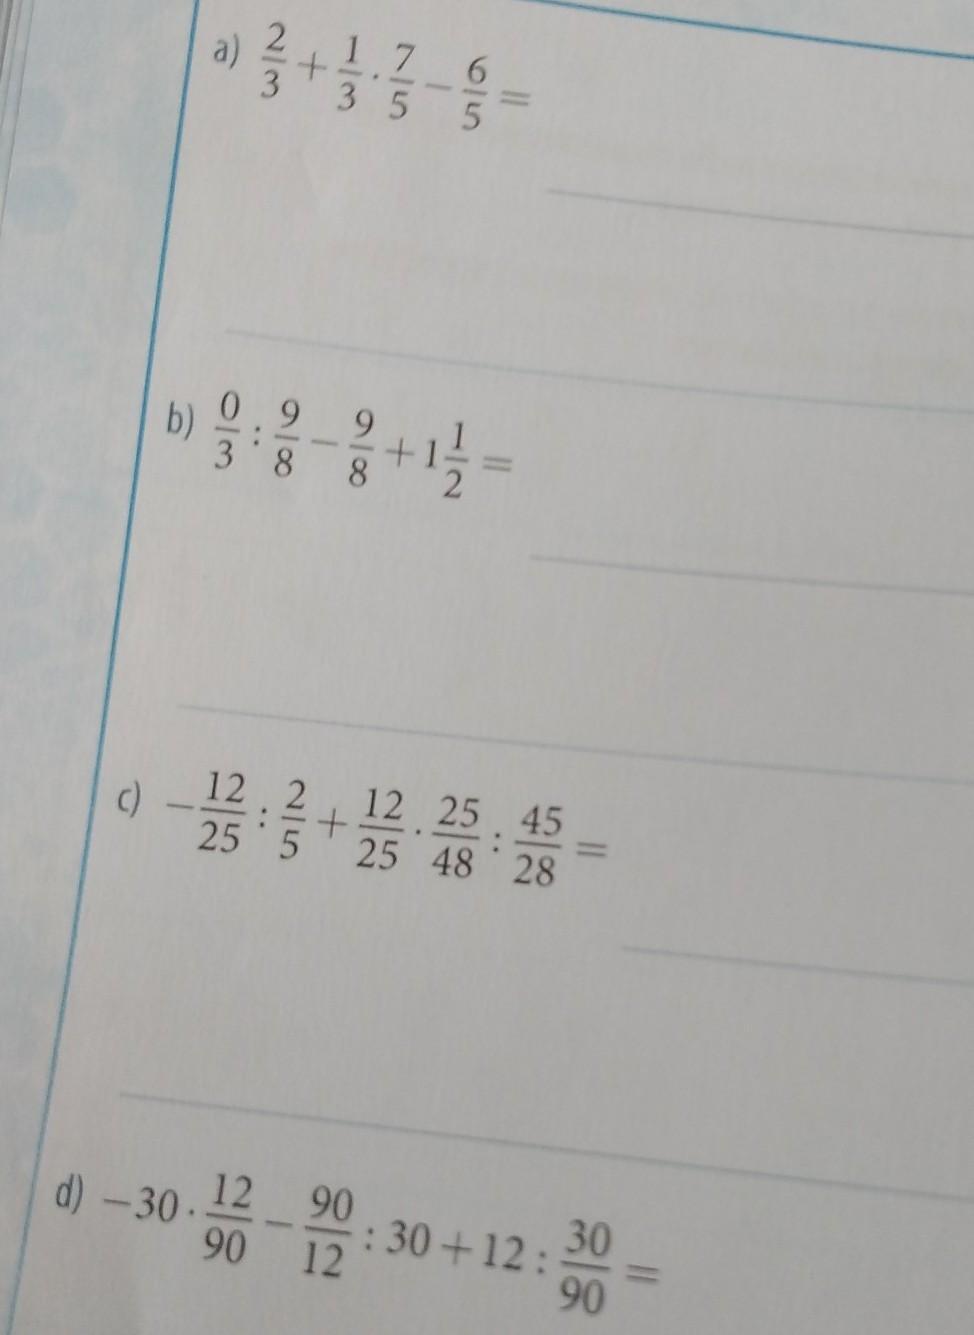 a) 2/3 + 1/3 · 7/5 − 6/5 =
b) 0/3 : 9/8 − 9/8 + 1 1/2 =
c) −12/25 : 2/5 + 12/25 · 25/48 : 45/28 =
d) −30 · 12/90 − 90/12 : 30 + 12 : 30/90 =